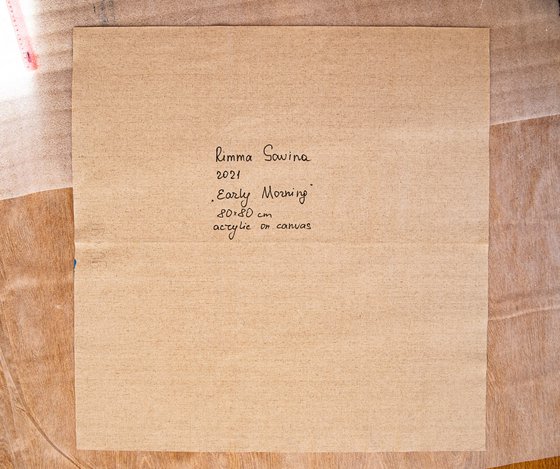 Rimma Savina
2021
„Early Morning"
80×80 cm
acrylic on canvas